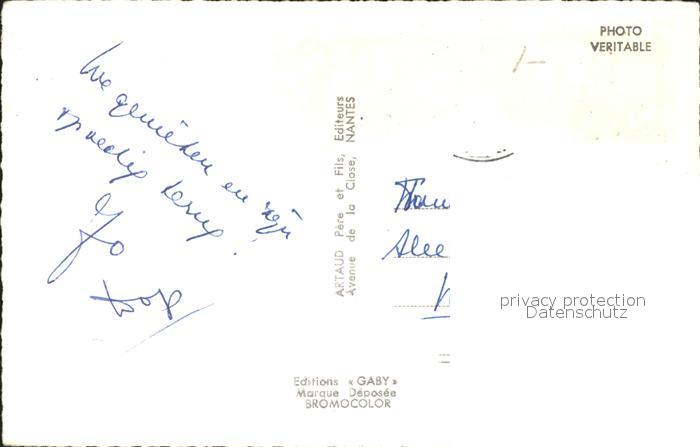 We genieten en zijn
spoedig terug!
Jo
PHOTO
VERITABLE
ARTAUD Père et Fils, Editeurs
Avenue de la Close, NANTES
privacy protection
Datenschutz
Editions « GABY »
Marque Déposée
BROMOCOLOR